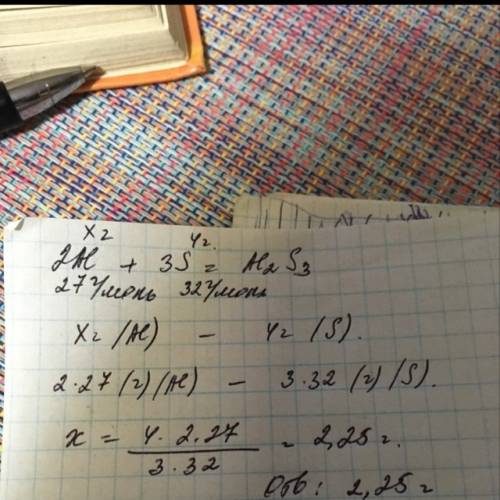 xг 4г.
2Al + 3S = Al2S3
27г/моль 32г/моль
xг (Al) — 4г (S).
2·27(г)(Al) — 3·32 (г)(S).
x = 4·2·27 / 3·32 = 2,25г.
Отв: 2,25г